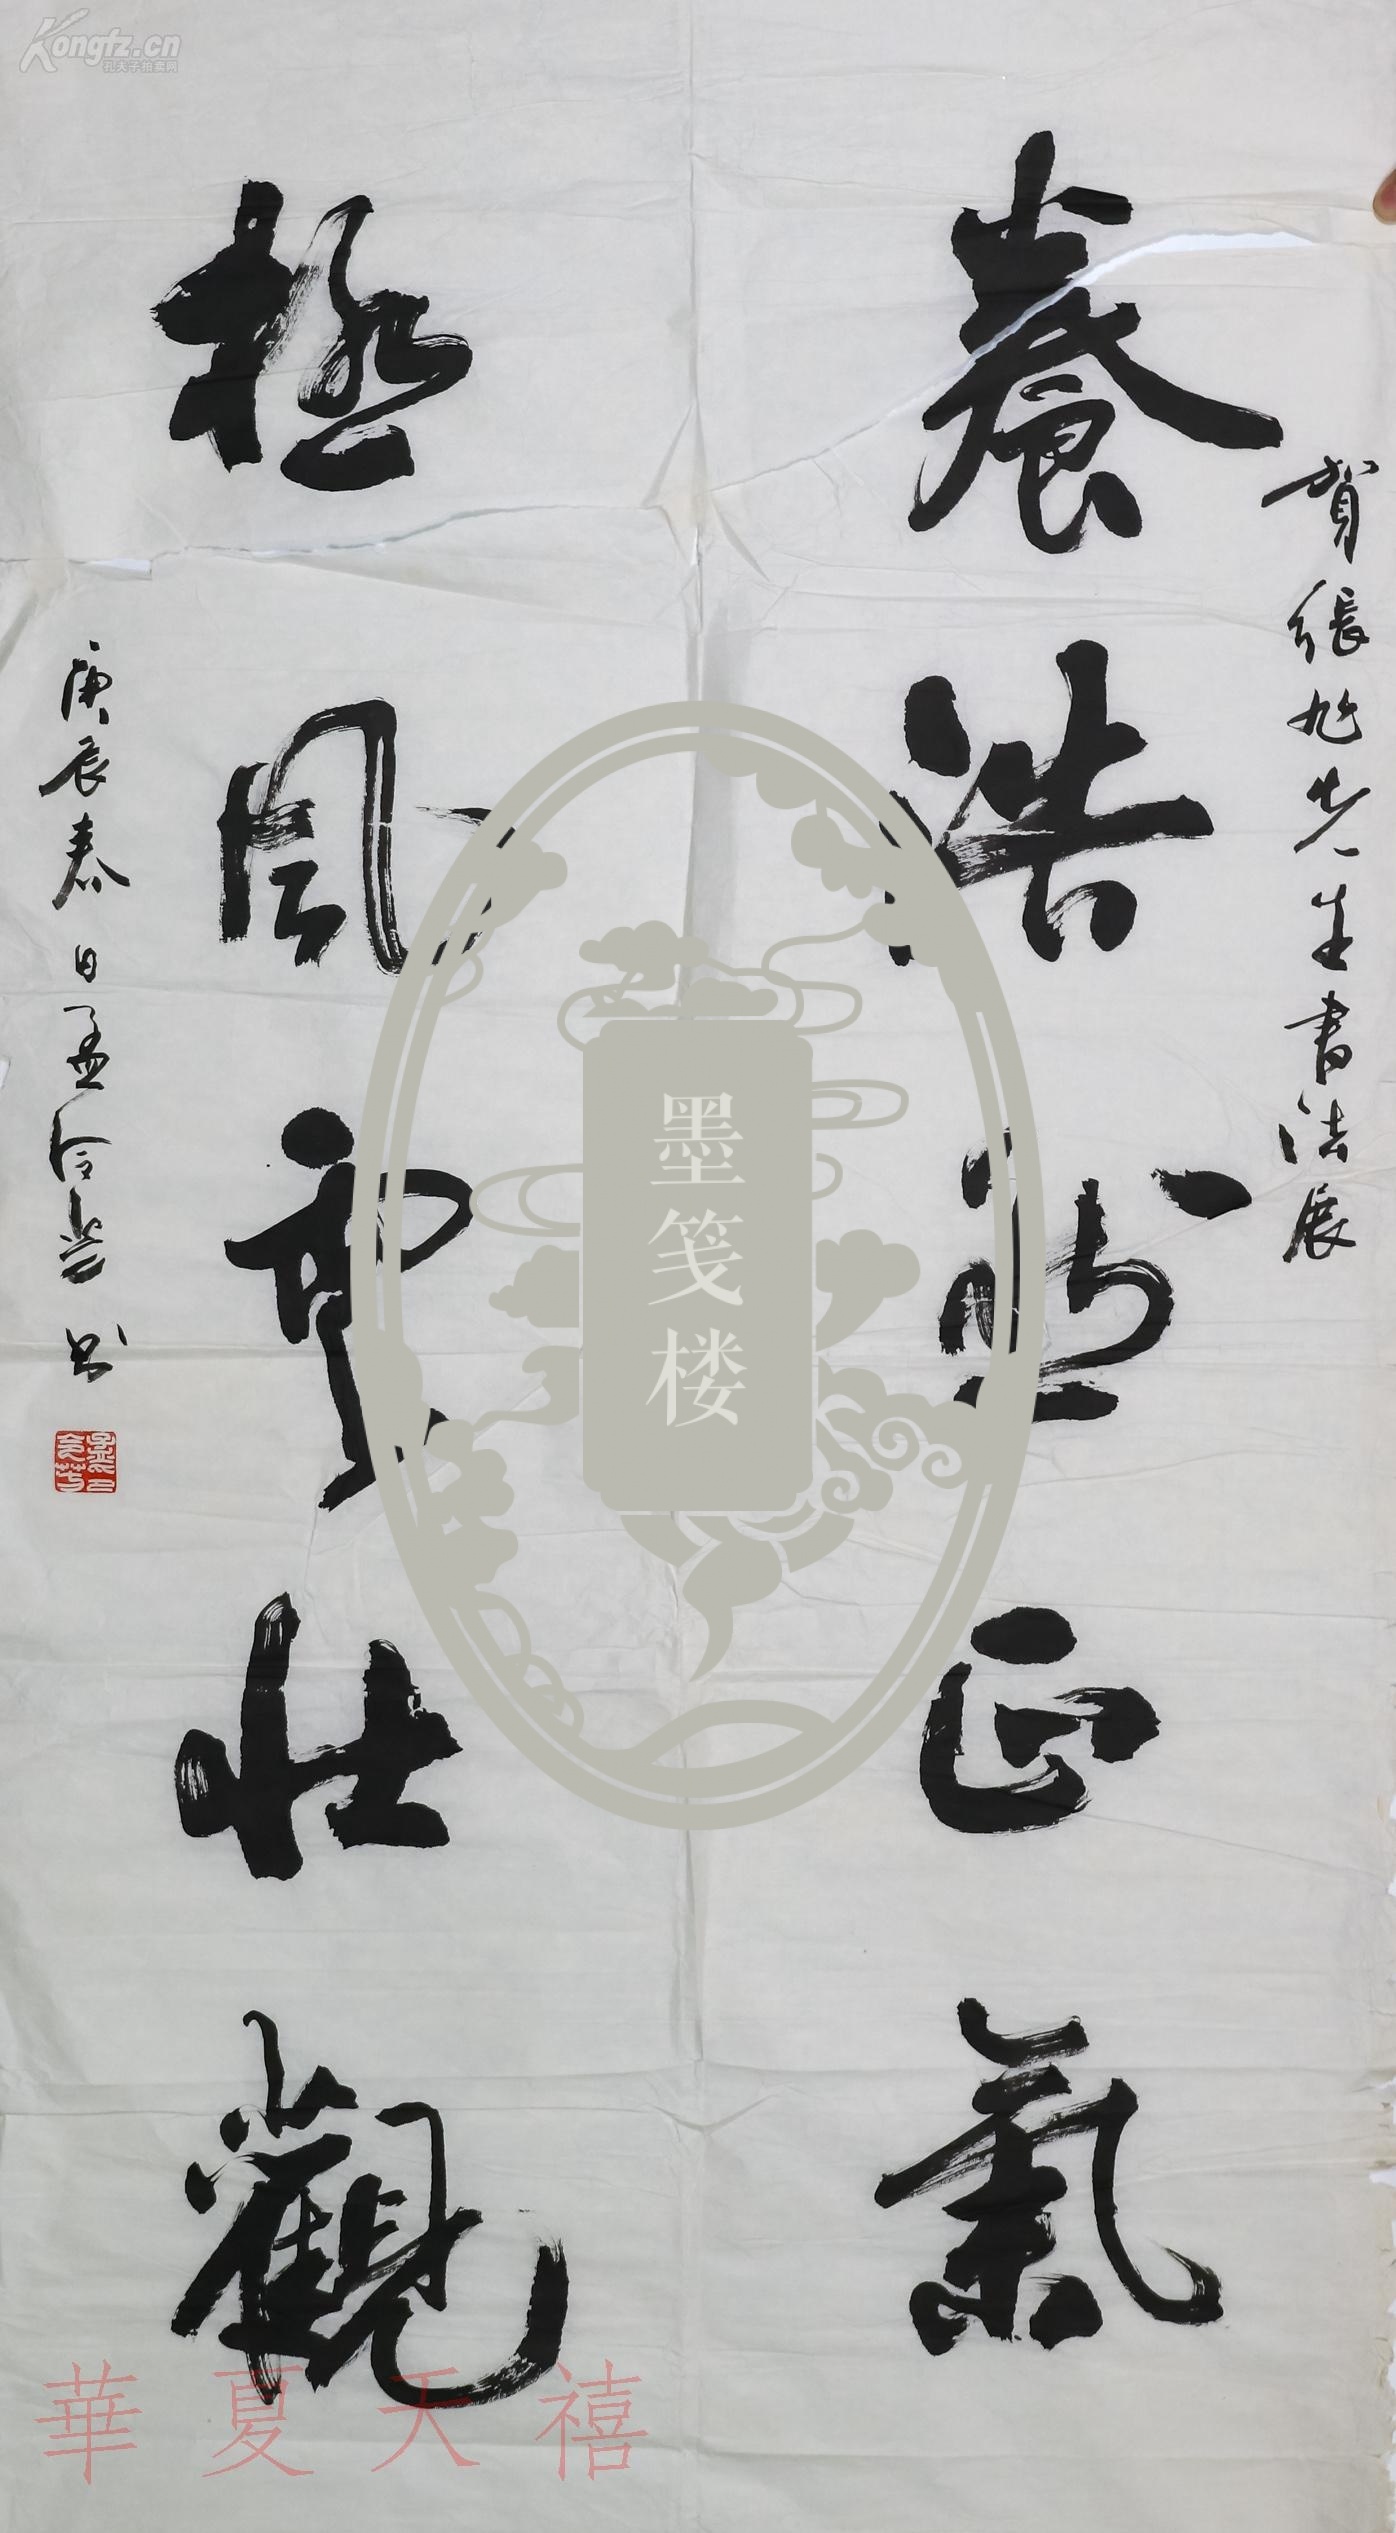 賀張旭先生書法展
養浩然正氣
極風雲壯觀
庚辰春日孟令芸書
Kongfz.cn
孔夫子拍卖网
墨笺楼
華夏天禧